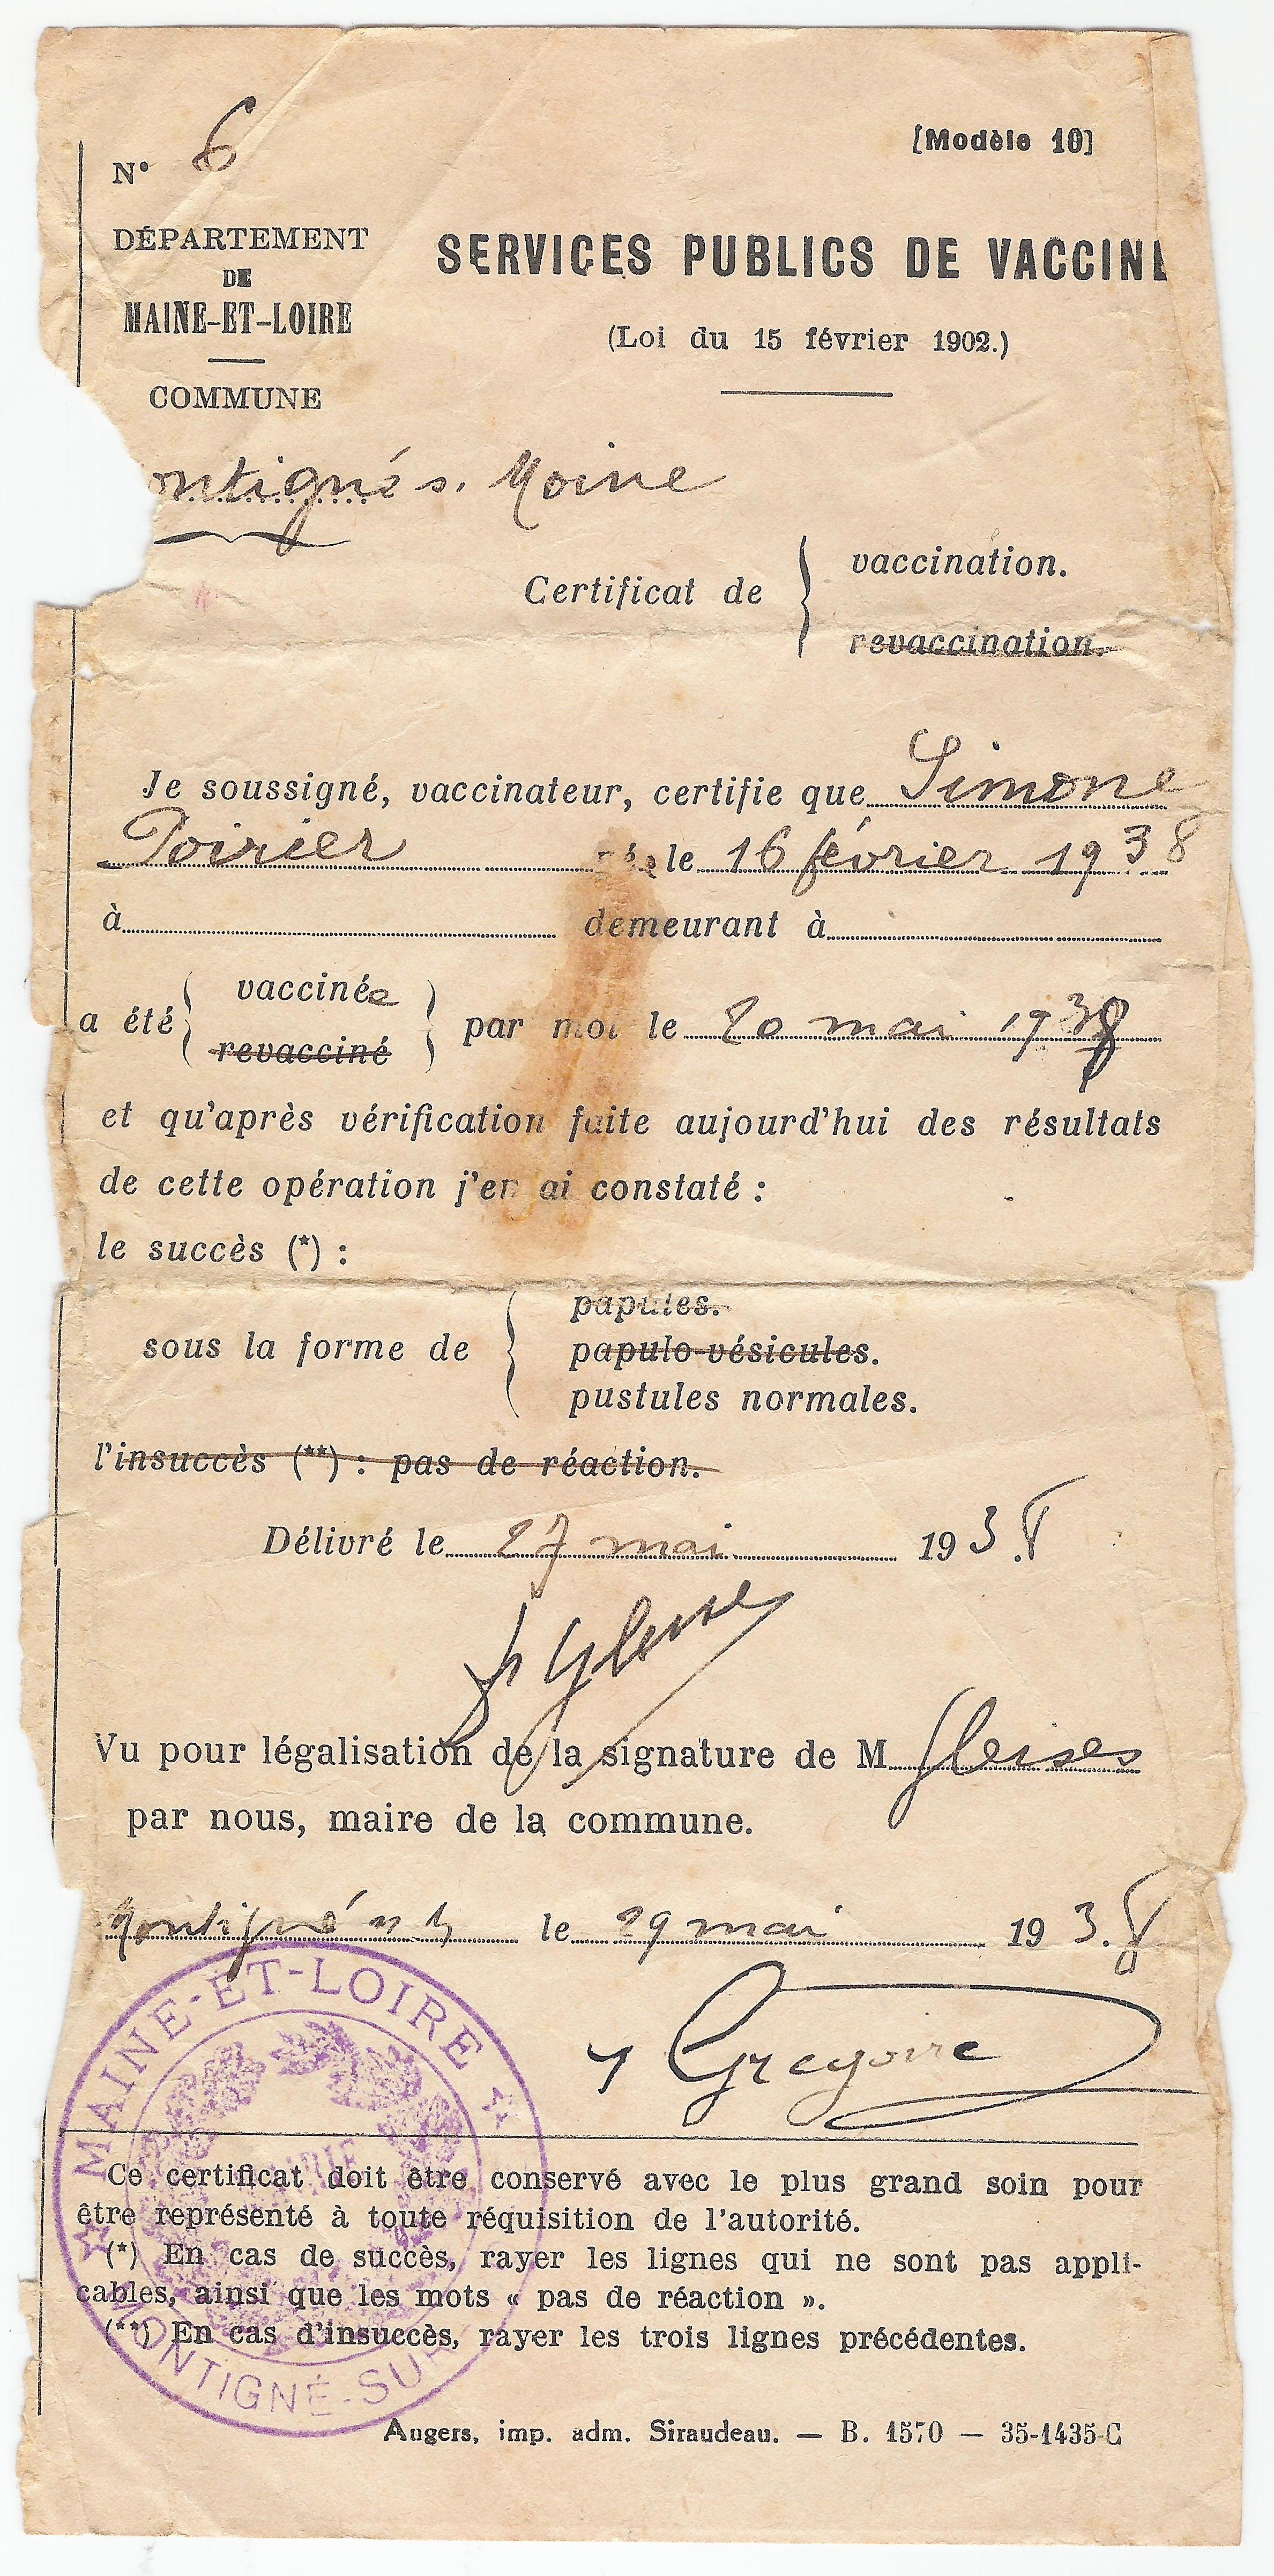 N° 6
[Modèle 10]
DÉPARTEMENT
DE
MAINE-ET-LOIRE
COMMUNE
SERVICES PUBLICS DE VACCINE
(Loi du 15 février 1902.)
ontigné s. Moine
Certificat de
vaccination.
revaccination.
Je soussigné, vaccinateur, certifie que Simone
Poirier née le 16 février 1938
à demeurant à
a été
vaccinée
revacciné
par moi le 20 mai 1938
et qu'après vérification faite aujourd'hui des résultats
de cette opération j'en ai constaté :
le succès (*) :
sous la forme de
papules.
papulo-vésicules.
pustules normales.
l'insuccès (**) : pas de réaction.
Délivré le 27 mai 1938
Vu pour légalisation de la signature de M Gleises
par nous, maire de la commune.
Montigné le 29 mai 1938
Gregoire
MAINE-ET-LOIRE
MONTIGNÉ-SUR
Ce certificat doit être conservé avec le plus grand soin pour
être représenté à toute réquisition de l'autorité.
(*) En cas de succès, rayer les lignes qui ne sont pas appli-
cables, ainsi que les mots « pas de réaction ».
(**) En cas d'insuccès, rayer les trois lignes précédentes.
Angers, imp. adm. Siraudeau. — B. 1570 — 35-1435-C